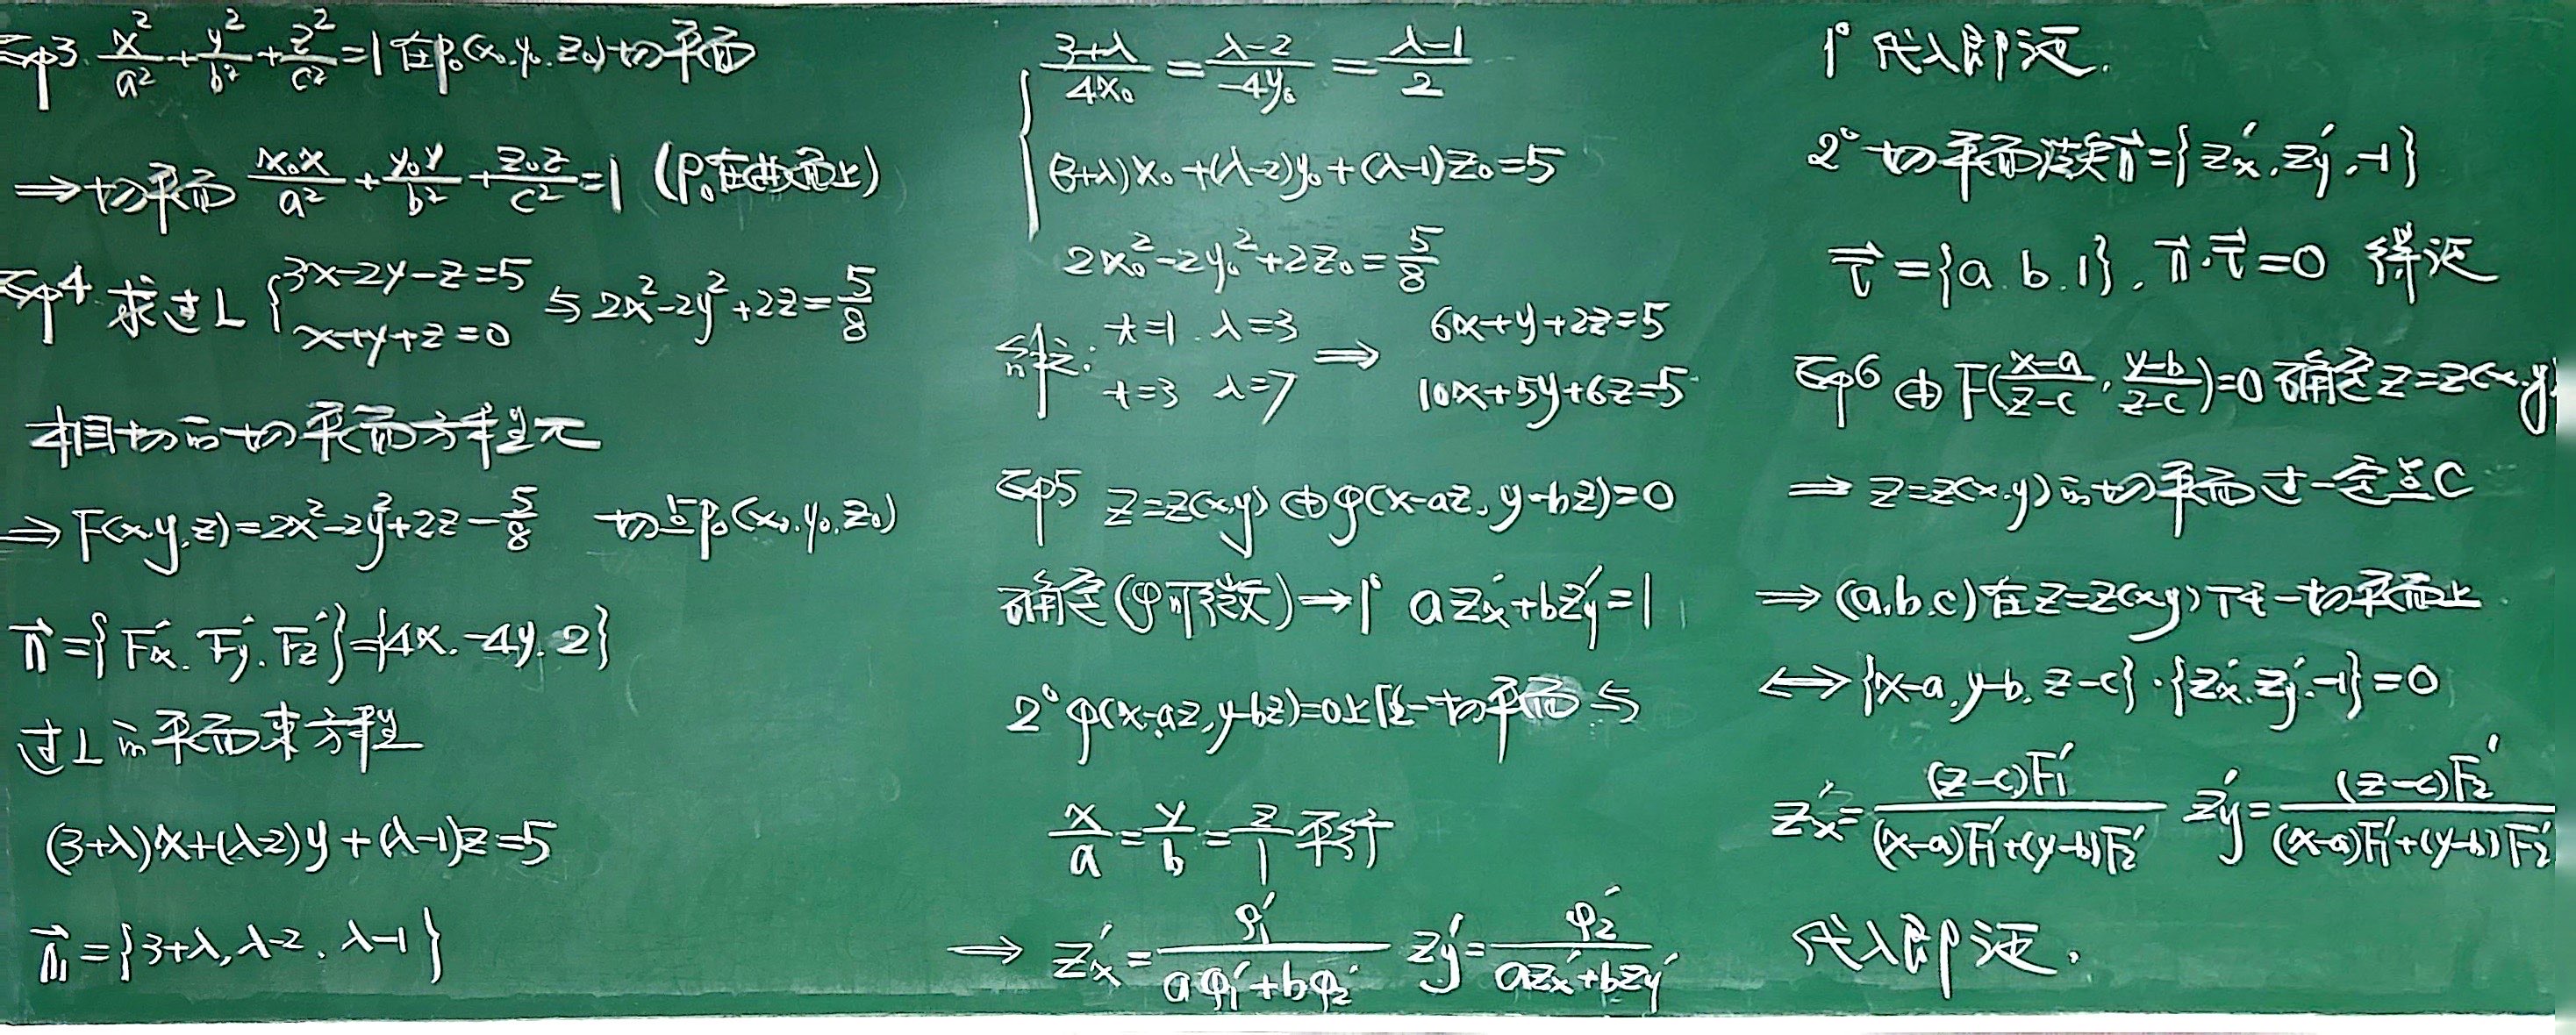 例3. x²/a² + y²/b² + z²/c² = 1 在P₀(x₀,y₀,z₀)切平面
⇒切平面 x₀x/a² + y₀y/b² + z₀z/c² = 1 (P₀在曲面上)
例4. 求过L {3x-2y-z=5 x+y+z=0 与2x²-2y²+2z=5/8
相切的切平面方程
⇒ F(x,y,z)=2x²-2y²+2z-5/8 切点P₀(x₀,y₀,z₀)
n⃗={Fx′, Fy′, Fz′}={4x, -4y, 2}
过L的平面束方程
(3+λ)x+(λ-2)y+(λ-1)z=5
n⃗₁={3+λ, λ-2, λ-1}
{(3+λ)/(4x₀) = (λ-2)/(-4y₀) = (λ-1)/2
(3+λ)x₀+(λ-2)y₀+(λ-1)z₀=5
2x₀²-2y₀²+2z₀=5/8
解之: t=1, λ=3 ⇒ 6x+y+2z=5
t=3 λ=7 10x+5y+6z=5
例5 z=z(x,y)由φ(x-az, y-bz)=0
确定(φ可微)→1° azx′+bzy′=1
2° φ(x-az, y-bz)=0上任一切平面与
x/a = y/b = z/1 平行
⇒ zx′=φ₁′/(aφ₁′+bφ₂′) zy′=φ₂′/(azx′+bzy′)
1° 代入即证.
2° 切平面法矢n⃗={zx′, zy′, -1}
τ⃗={a, b, 1}, n⃗·τ⃗=0 得证
例6 由F((x-a)/(z-c), (y-b)/(z-c))=0 确定z=z(x,y)
⇒ z=z(x,y)的切平面过一定点C
⇒ (a,b,c)在z=z(x,y)任一切平面上.
⇔ {x-a, y-b, z-c}·{zx′, zy′, -1}=0
zx′=(z-c)F₁′/((x-a)F₁′+(y-b)F₂′) zy′=(z-c)F₂′/((x-a)F₁′+(y-b)F₂′)
代入即证.